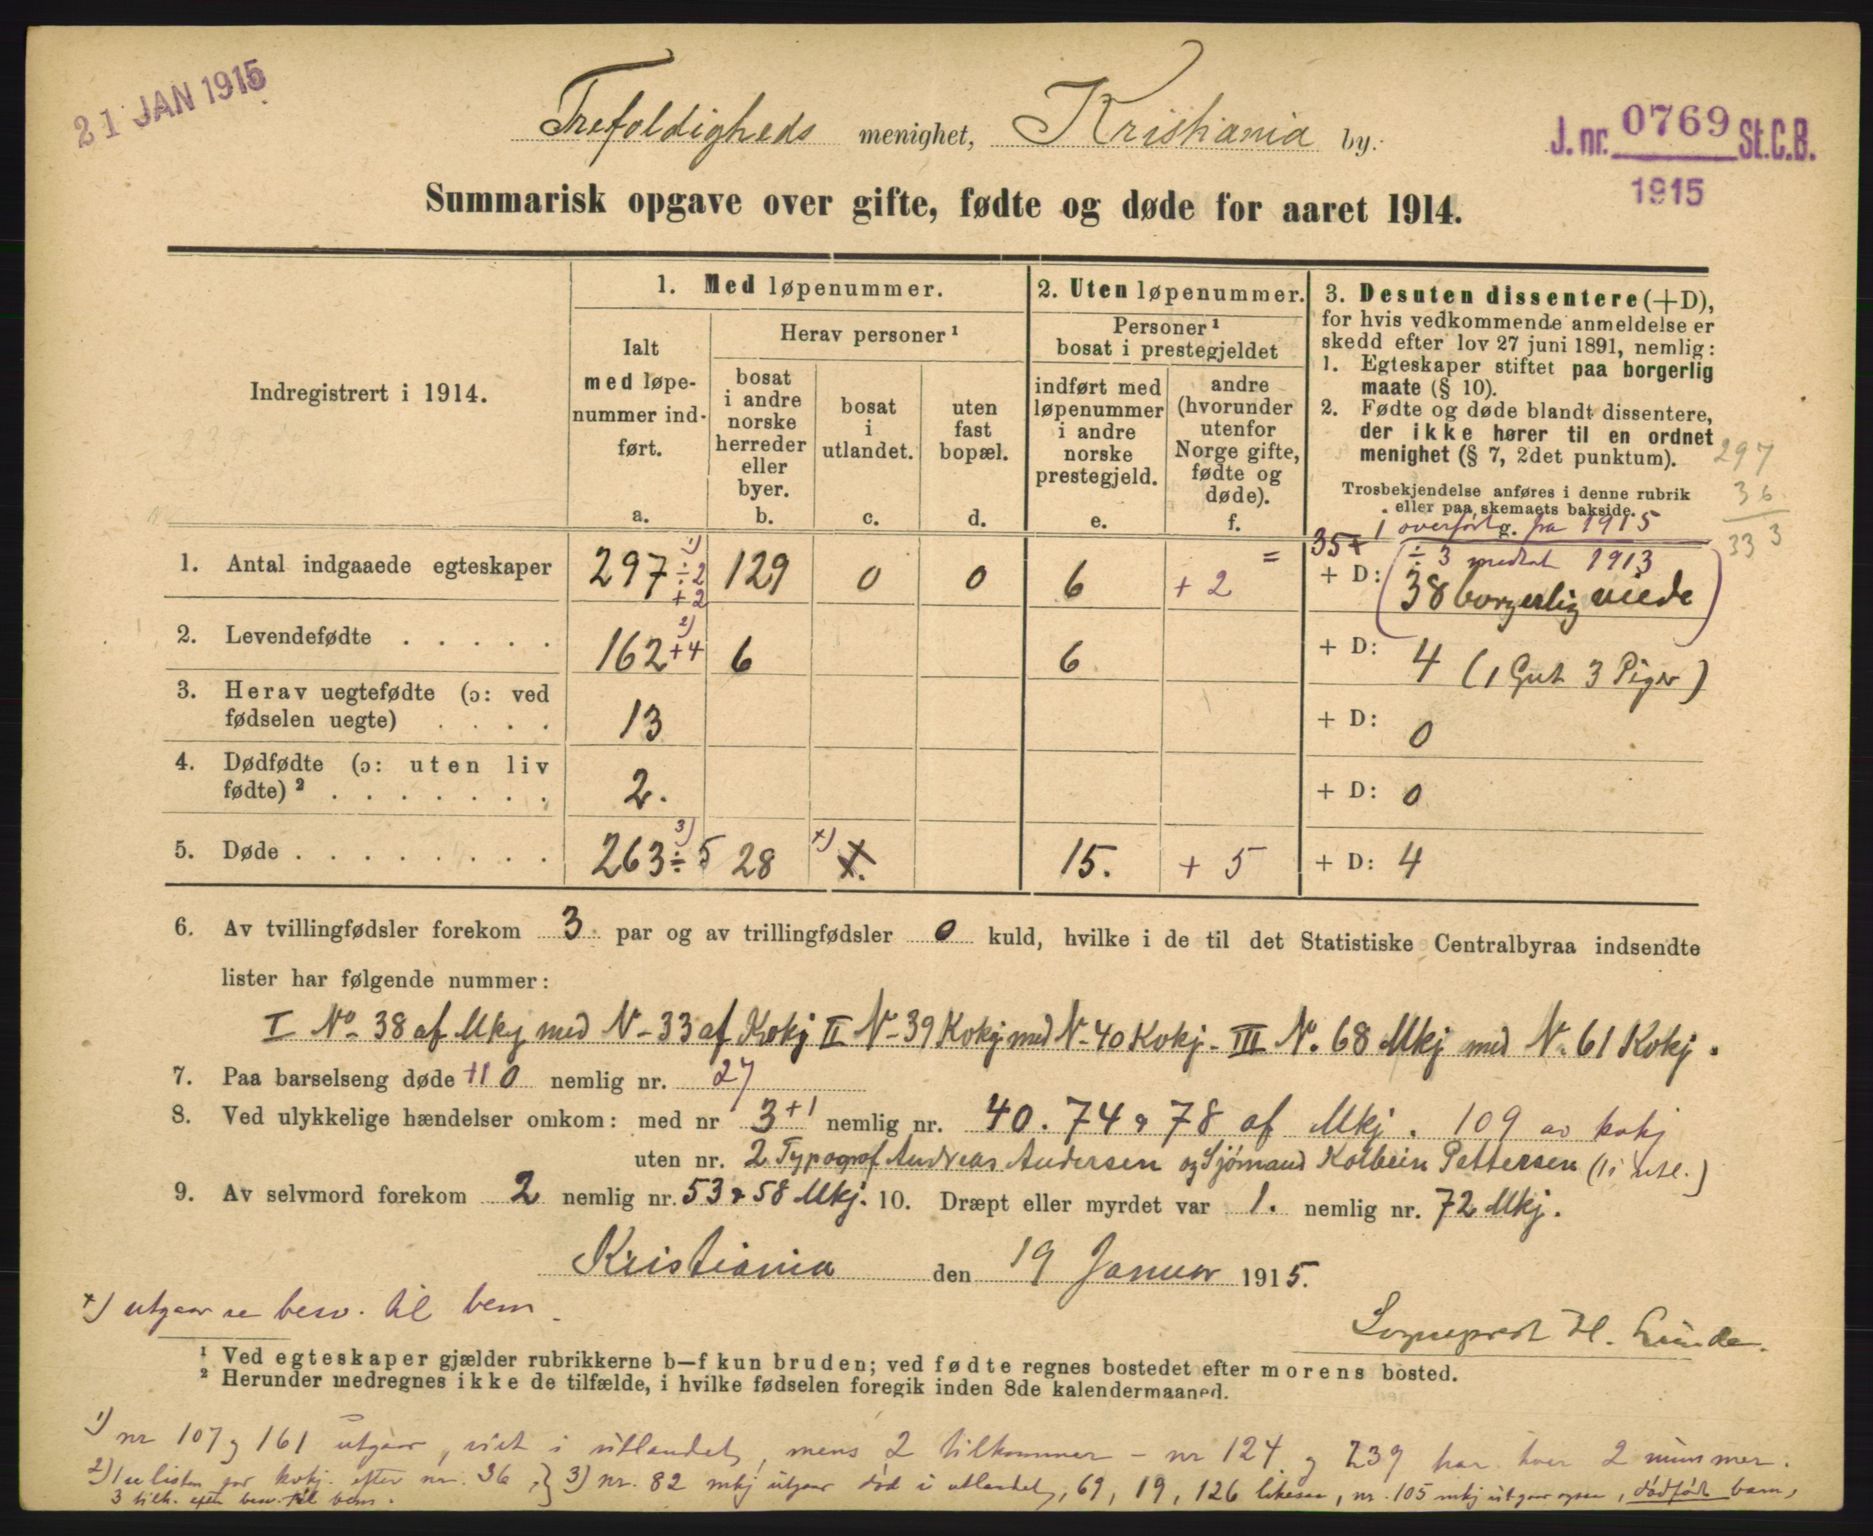 21 JAN 1915
Trefoldigheds menighet, Kristiania by.
J. nr. 0769 St.C.B.
1915
Summarisk opgave over gifte, fødte og døde for aaret 1914.
Indregistrert i 1914.
1. Med løpenummer.
Ialt med løpenummer indført.
a.
Herav personer ¹
bosat i andre norske herreder eller byer.
b.
bosat i utlandet.
c.
uten fast bopæl.
d.
2. Uten løpenummer.
Personer ¹ bosat i prestegjeldet
indført med løpenummer i andre norske prestegjeld.
e.
andre (hvorunder utenfor Norge gifte, fødte og døde).
f.
3. Desuten dissentere (+D),
for hvis vedkommende anmeldelse er
skedd efter lov 27 juni 1891, nemlig:
1. Egteskaper stiftet paa borgerlig
maate (§ 10).
2. Fødte og døde blandt dissentere,
der ikke hører til en ordnet
menighet (§ 7, 2det punktum).
Trosbekjendelse anføres i denne rubrik
eller paa skemaets bakside.
g.
297
36
333
1 overført fra 1915
÷ 3 medtat 1913
1. Antal indgaaede egteskaper 297 ¹) ÷2 +2 129 0 0 6 + 2 = 35+ + D: (38 borgerlig viede)
2. Levendefødte . . . . . 162 ²) +4 6 6 + D: 4 (1 Gut 3 Piger)
3. Herav uegtefødte (ɔ: ved
fødselen uegte) . . . . 13 + D: 0
4. Dødfødte (ɔ: uten liv
fødte) ² . . . . . . . 2. + D: 0
5. Døde . . . . . . . . 263 ³) ÷ 5 28 ×) 15. + 5 + D: 4
6. Av tvillingfødsler forekom 3 par og av trillingfødsler 0 kuld, hvilke i de til det Statistiske Centralbyraa indsendte
lister har følgende nummer:
I No- 38 af Mkj med N- 33 af Kvkj II N- 39 Kvkj med N- 40 Kvkj- III N. 68 Mkj med N. 61 Kvkj.
7. Paa barselseng døde +1 0 nemlig nr. 27
8. Ved ulykkelige hændelser omkom: med nr 3 +1 nemlig nr. 40. 74 & 78 af Mkj. 109 av kvkj
uten nr. 2 Typograf Andreas Andersen og Sjømand Kolbein Pettersen (1 i utl.)
9. Av selvmord forekom 2 nemlig nr. 53 & 58 Mkj. 10. Dræpt eller myrdet var 1. nemlig nr. 72 Mkj.
Kristiania den 19 Januar 1915.
Sogneprest H. Lunde.
×) utgaar se besv. til bem.
¹ Ved egteskaper gjælder rubrikkerne b–f kun bruden; ved fødte regnes bostedet efter morens bosted.
² Herunder medregnes ikke de tilfælde, i hvilke fødselen foregik inden 8de kalendermaaned.
¹) nr 107 og 161 utgaar, viet i utlandet, mens 2 tilkommer – nr 124 og 239 har hver 2 nummer.
2) 1 se listen for kvkj. efter nr. 36, } 3) nr. 82 mkj utgaar død i utlandet, 69, 19, 126 likesaa, nr. 105 mkj utgaar ogsaa, dødfødt barn,
3 tilk. efter besv. til bem.